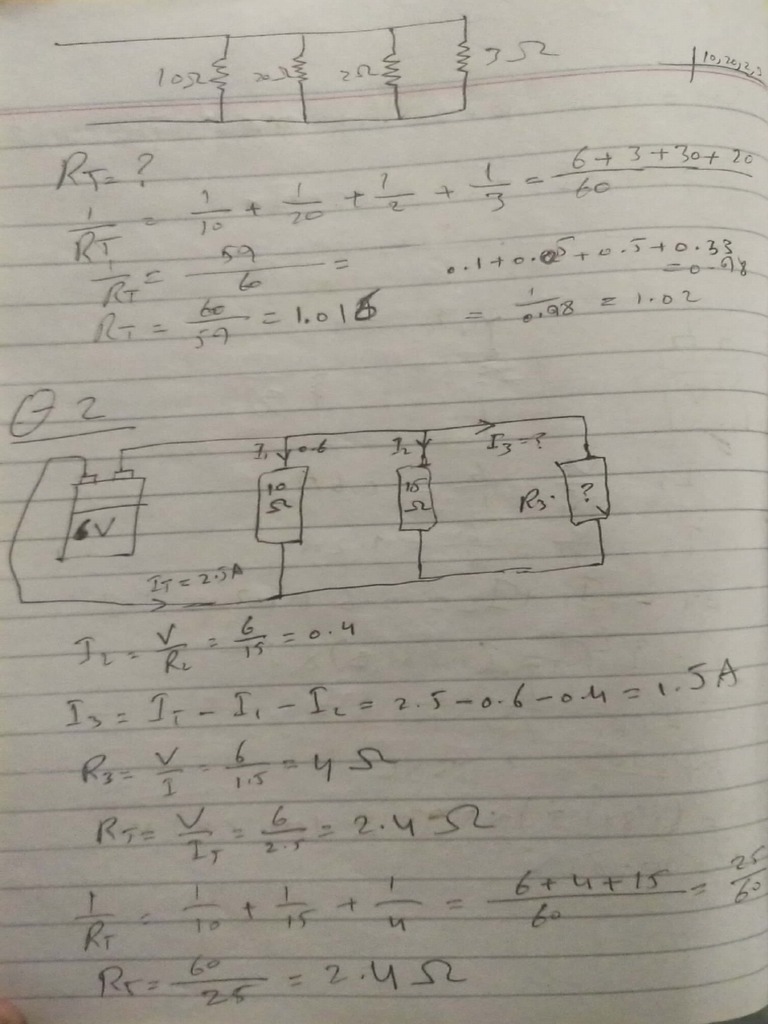 10Ω 20Ω 2Ω 3Ω
10, 20, 2, 3
R_T = ?
1/R_T = 1/10 + 1/20 + 1/2 + 1/3 = (6 + 3 + 30 + 20)/60
1/R_T = 59/60 =
0.1 + 0.05 + 0.5 + 0.33
= 0.98
R_T = 60/59 = 1.016
= 1/0.98 = 1.02
Q 2
I₁ 0.6 I₂ I₃ = ?
6V
10 Ω
15 Ω
R₃. ?
I_T = 2.5A
I₂ = V/R₂ = 6/15 = 0.4
I₃ = I_T - I₁ - I₂ = 2.5 - 0.6 - 0.4 = 1.5A
R₃ = V/I = 6/1.5 = 4 Ω
R_T = V/I_T = 6/2.5 = 2.4 Ω
1/R_T = 1/10 + 1/15 + 1/4 = (6 + 4 + 15)/60 = 25/60
R_T = 60/25 = 2.4 Ω